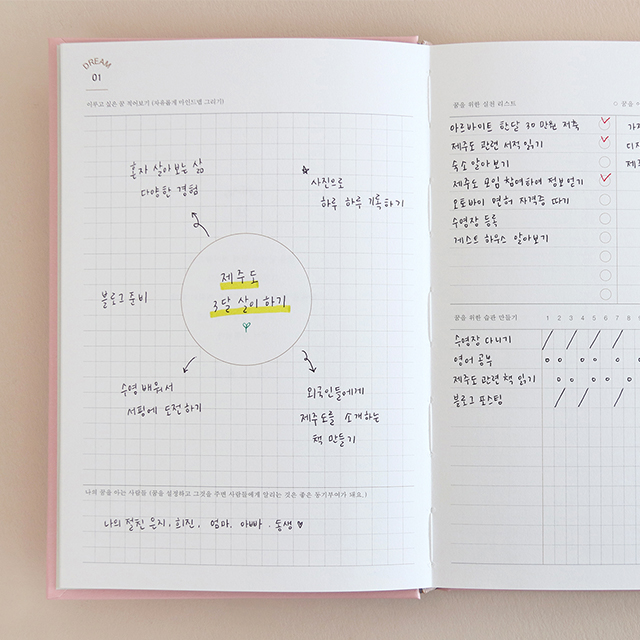 DREAM
01
이루고 싶은 꿈 적어보기 (자유롭게 마인드맵 그리기)
혼자 살아보는 삶
다양한 경험
사진으로
하루 하루 기록하기
제주도
3달 살이 하기
블로그 준비
수영 배워서
서핑에 도전하기
외국인들에게
제주도를 소개하는
책 만들기
나의 꿈을 아는 사람들 (꿈을 설정하고 그것을 주변 사람들에게 알리는 것은 좋은 동기부여가 돼요.)
나의 절친 은지, 희진, 엄마. 아빠. 동생
꿈을 위한 실천 리스트
아르바이트 한달 30만원 저축
제주도 관련 서적 읽기
숙소 알아보기
제주도 모임 참여하여 정보 얻기
오토바이 면허 자격증 따기
수영장 등록
게스트 하우스 알아보기
꿈을 위한 습관 만들기 1 2 3 4 5 6 7 8
수영장 다니기
영어 공부
제주도 관련 책 읽기
블로그 포스팅